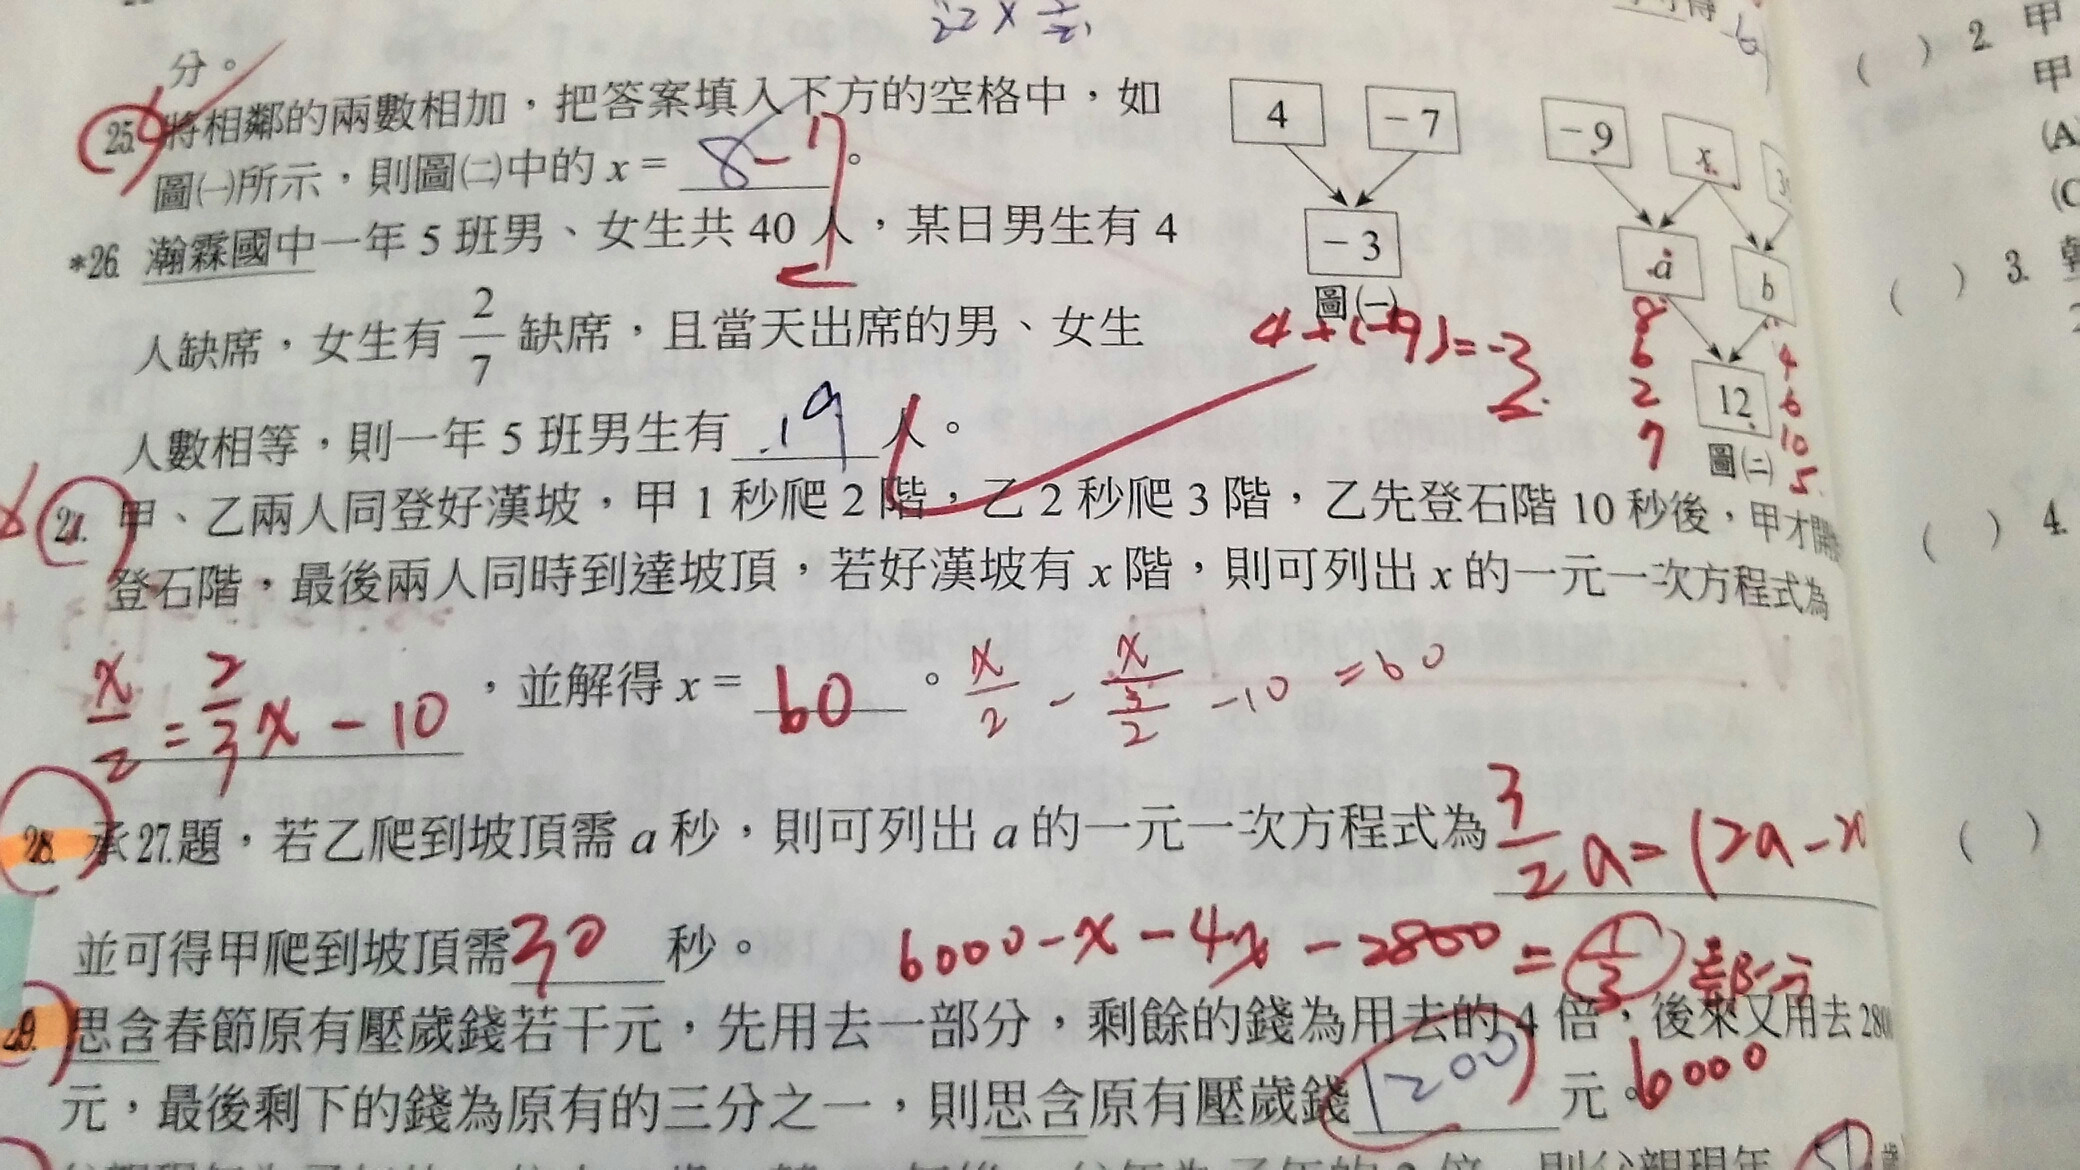 22 × 7/2
分。
25. 將相鄰的兩數相加,把答案填入下方的空格中,如
圖㈠所示,則圖㈡中的 x = 8 -7 。
4 -7
-3
圖㈠
4+(-7)=-3
-9 x 3
a b
12
圖㈡
8 6 2 7
4 6 10 5
*26. 瀚霖國中一年 5 班男、女生共 40 人,某日男生有 4
人缺席,女生有 2/7 缺席,且當天出席的男、女生
人數相等,則一年 5 班男生有 19 人。
27. 甲、乙兩人同登好漢坡,甲 1 秒爬 2 階,乙 2 秒爬 3 階,乙先登石階 10 秒後,甲才開始
登石階,最後兩人同時到達坡頂,若好漢坡有 x 階,則可列出 x 的一元一次方程式為
x/2 = 2/3 x - 10 ,並解得 x = 60 。 x/2 - x/(3/2) - 10 = 60
28. 承27.題,若乙爬到坡頂需 a 秒,則可列出 a 的一元一次方程式為 3/2 a = (2a-
並可得甲爬到坡頂需 30 秒。 6000-x-4x-2800 = 1/3
29. 思含春節原有壓歲錢若干元,先用去一部分,剩餘的錢為用去的 4 倍,後來又用去 2800
元,最後剩下的錢為原有的三分之一,則思含原有壓歲錢 1200 元。6000
2. 甲
甲
(A)
(C
3.
4.